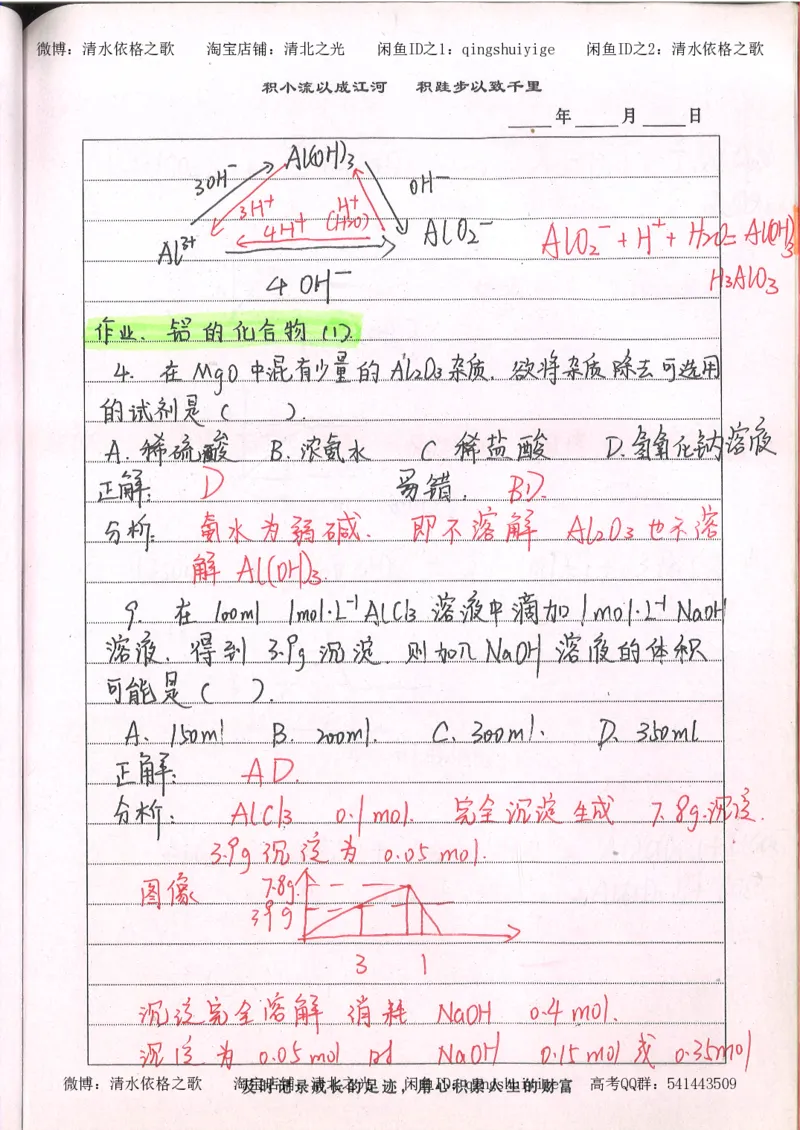 微博：清水依格之歌 淘宝店铺：清北之光 闲鱼ID之1：qingshuiyige 闲鱼ID之2：清水依格之歌
积小流以成江河 积跬步以致千里
年 月 日
Al(OH)₃
3OH⁻ OH⁻
3H⁺ H⁺
4H⁺ (H₂O)
Al³⁺ AlO₂⁻ AlO₂⁻ + H⁺ + H₂O = Al(OH)₃
4OH⁻ H₃AlO₃
作业、铝的化合物(1).
4. 在MgO中混有少量的Al₂O₃杂质．欲将杂质除去可选用
的试剂是（ ）．
A. 稀硫酸 B. 浓氨水 C. 稀盐酸 D. 氢氧化钠溶液
正解： D 易错． BD.
分析： 氨水为弱碱． 即不溶解 Al₂O₃也不溶
解 Al(OH)₃.
9. 在 100ml 1mol·L⁻¹ AlCl₃ 溶液中滴加 1mol·L⁻¹ NaOH
溶液．得到 3.9g 沉淀．则加入NaOH 溶液的体积
可能是（ ）．
A、150ml B、200ml. C、300ml. D、350ml
正解： AD.
分析： AlCl₃ 0.1mol. 完全沉淀生成 7.8g沉淀．
3.9g沉淀为 0.05mol.
图像 7.8g
3.9g
3 1
沉淀完全溶解 消耗 NaOH 0.4mol.
沉淀为 0.05mol 时 NaOH 0.15mol 或 0.35mol
及时记录成长的足迹，用心积累人生的财富
微博：清水依格之歌 淘宝店铺：清北之光 闲鱼ID：qingshuiyige 高考QQ群：541443509